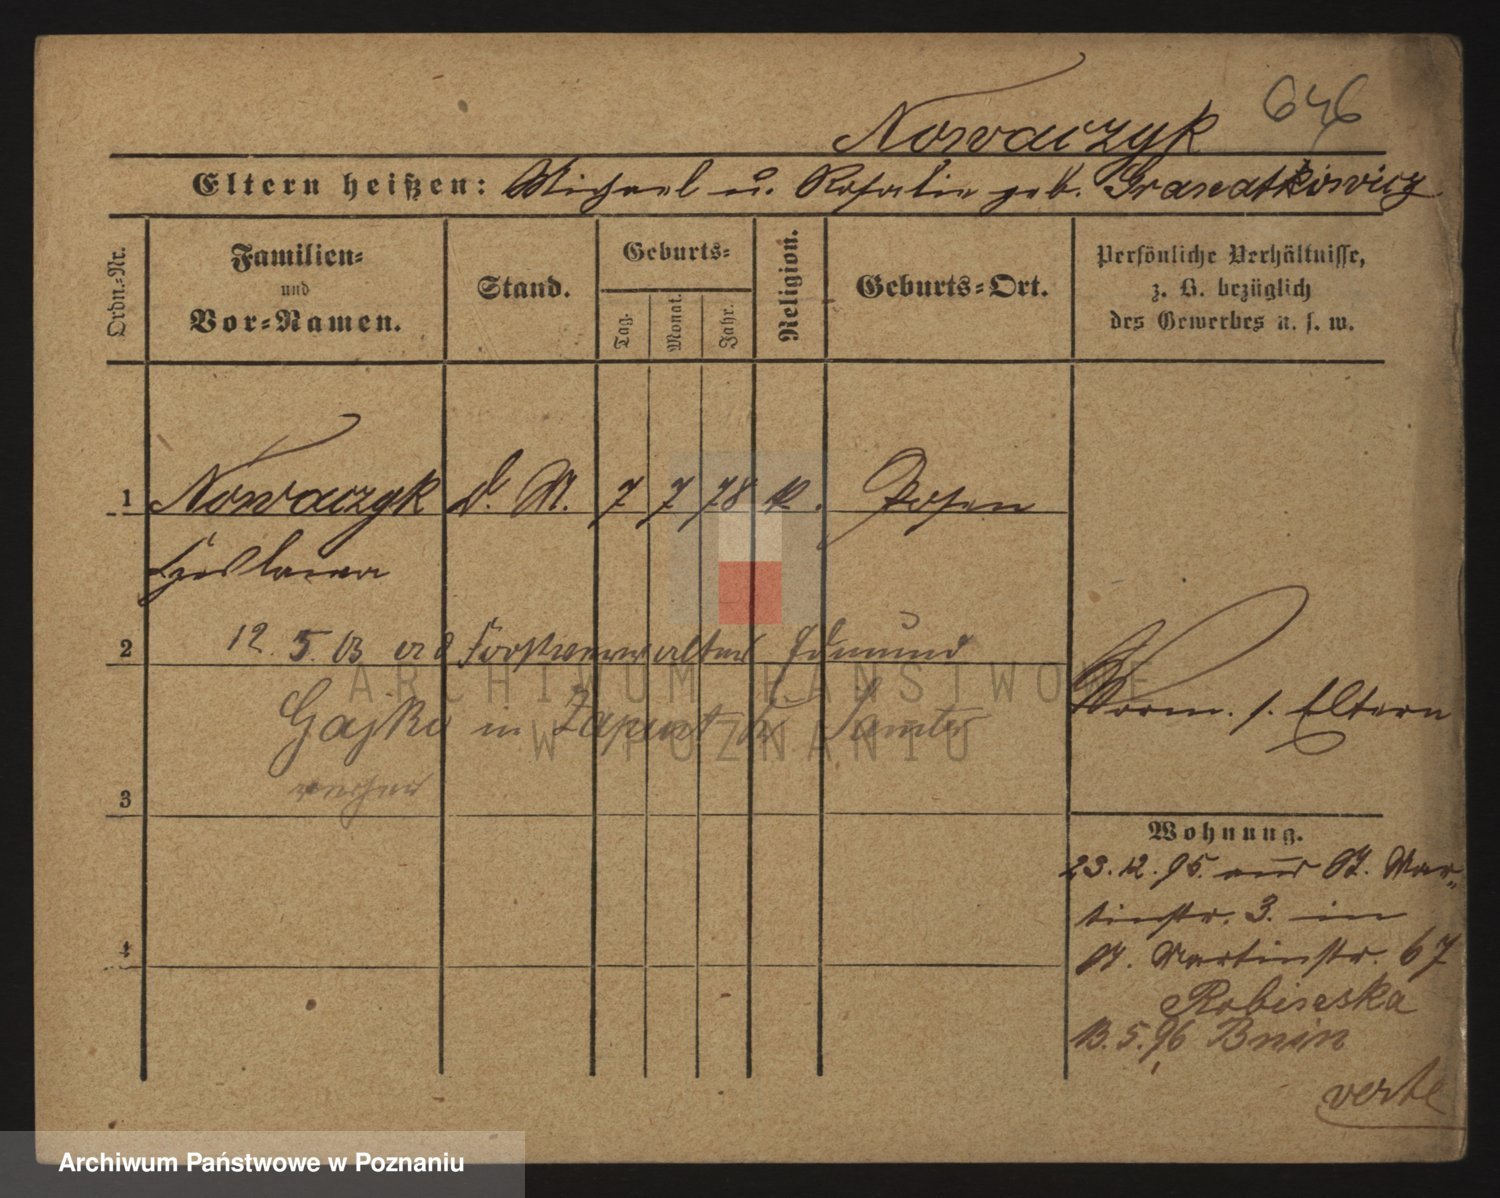 646
Nowaczyk
Eltern heißen: Michael u. Rosalie geb. Granatkowicz
Ordn.-Nr.
Familien-
und
Vor-Namen.
Stand.
Geburts-
Tag.
Monat.
Jahr.
Religion.
Geburts-Ort.
Persönliche Verhältnisse,
z. B. bezüglich
des Gewerbes u. s. w.
1 Nowaczyk d. M. 7 7 78 k. Posen
2 12. 5. 03 Forstverwalter Edmund
Gajko in Samter
3
4
Vorm. s. Eltern
Wohnung.
23. 12. 95. aus St. Mar-
tinstr. 3. in
St. Martinstr. 67
13. 5. 96 Bnin
verte
ARCHIWUM PAŃSTWOWE
W POZNANIU
Archiwum Państwowe w Poznaniu